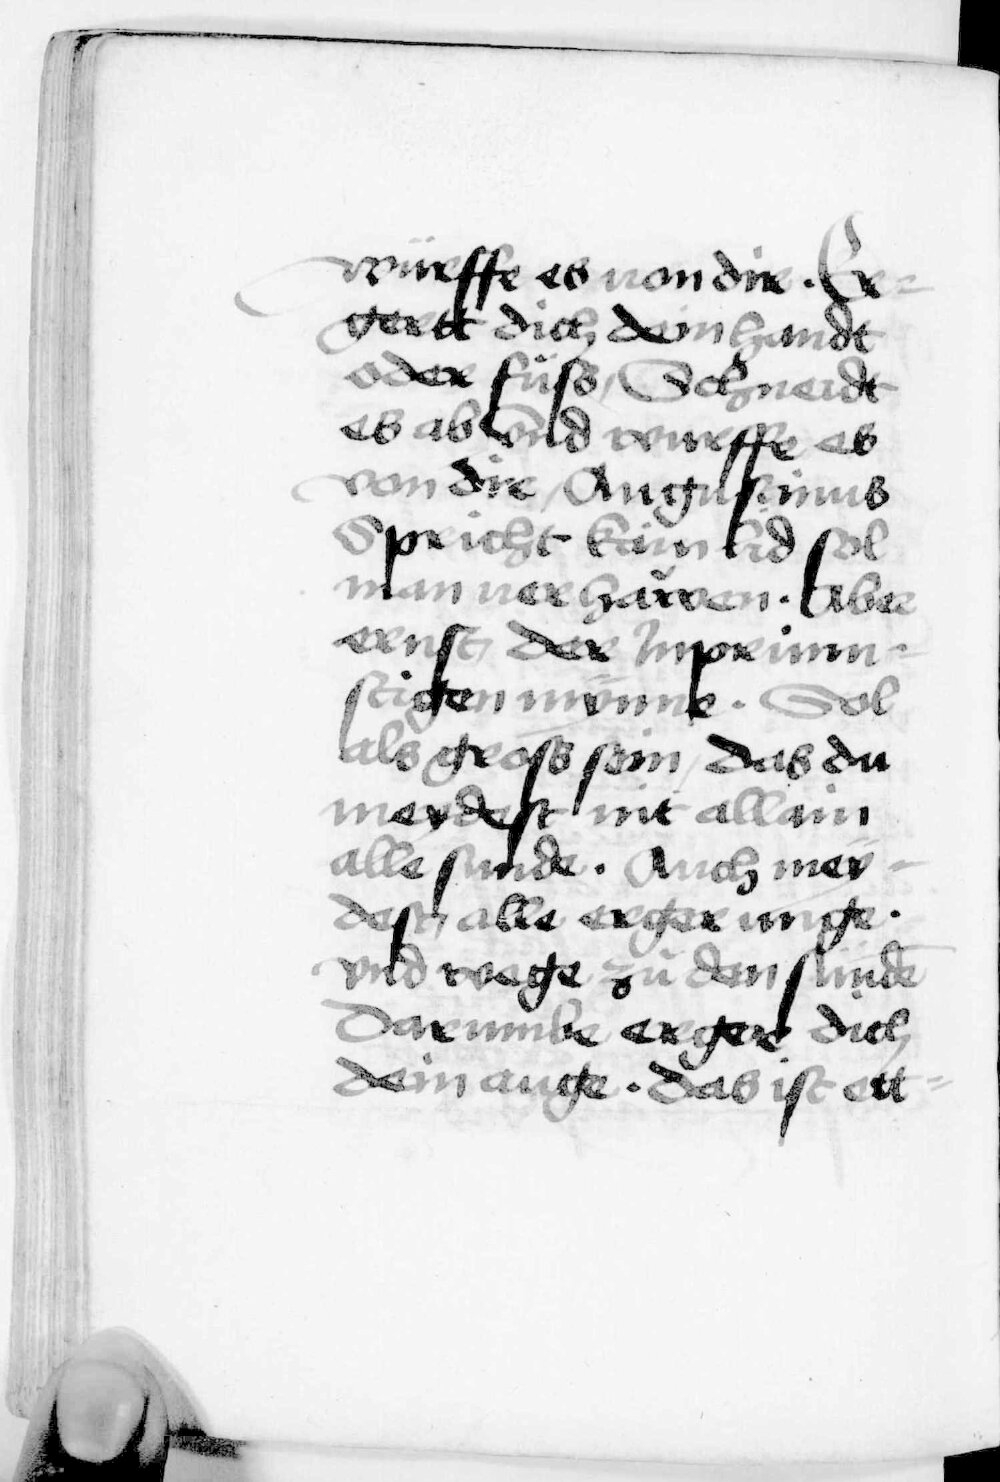 würffe es uon dir. Er-
gertt dich dein handt
oder füß, Schneidt
es ab vnd wurffe es
von dir, Augustinus
Spricht kain lid sol
man uerhawen. Aber
ernst, der Inprinn-
stigen mynne. Sol
als groß sein, das du
meydest nit allain
alle sunde. Auch mey-
dest, alle ergerunge.
vnd wege zů den sünde
Darumbe erger dich
dein auge. das ist ett-